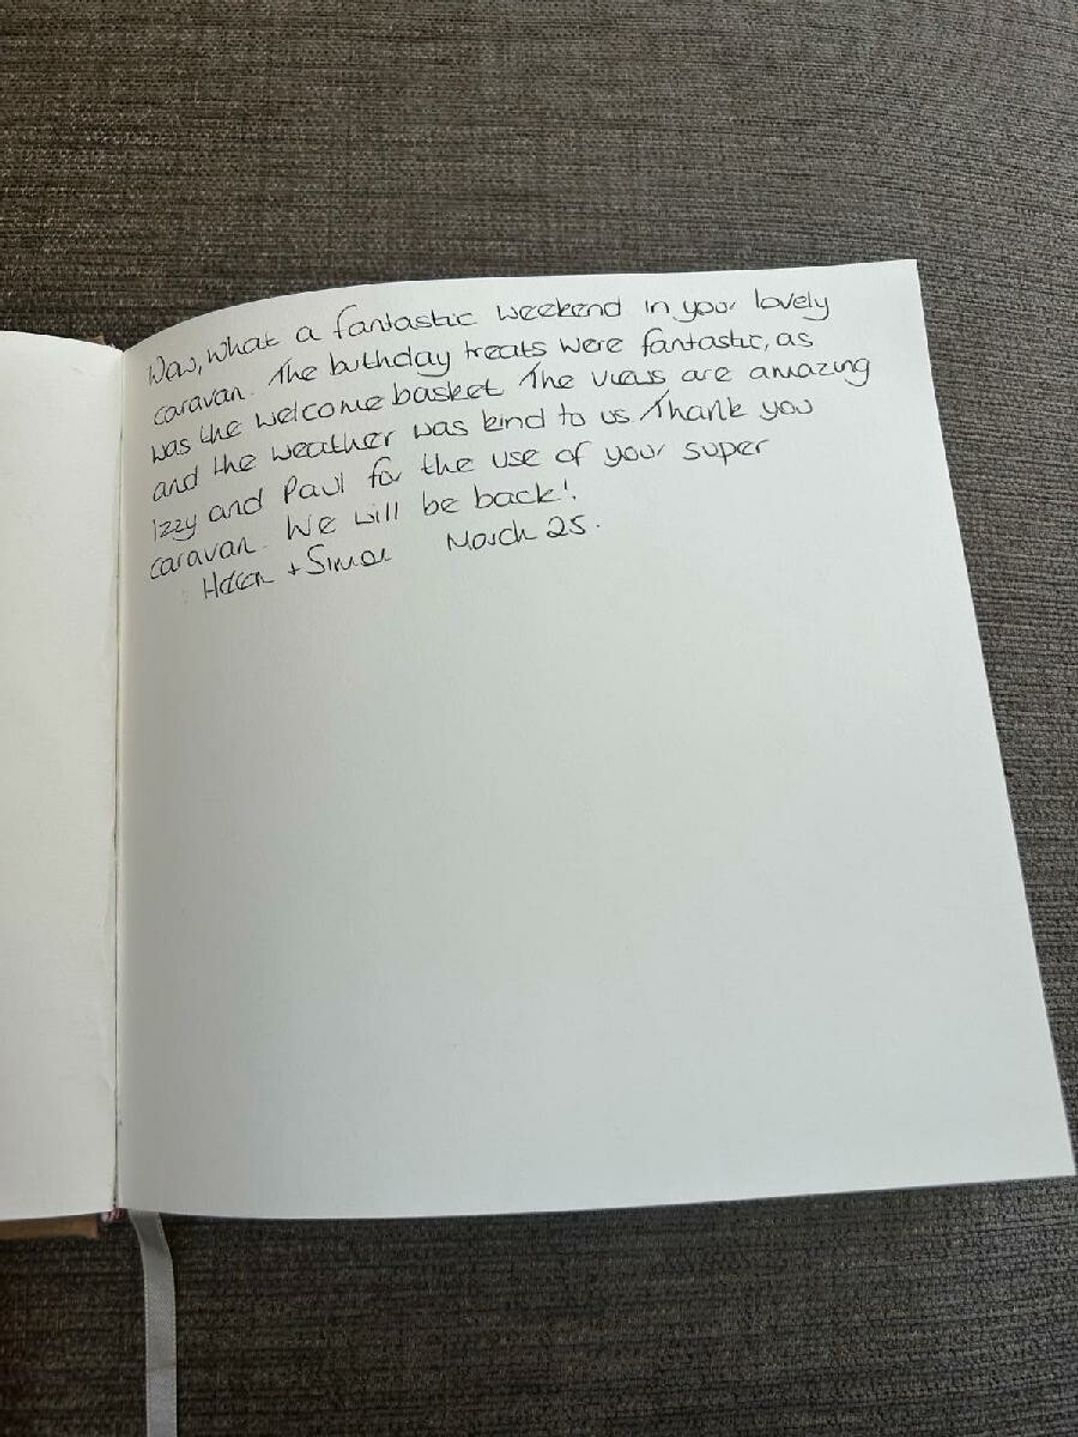 Wow, what a fantastic weekend in your lovely
caravan. The birthday treats were fantastic, as
was the welcome basket. The views are amazing
and the weather was kind to us. Thank you
Izzy and Paul for the use of your super
caravan. We will be back!
Helen + Simon March 25.